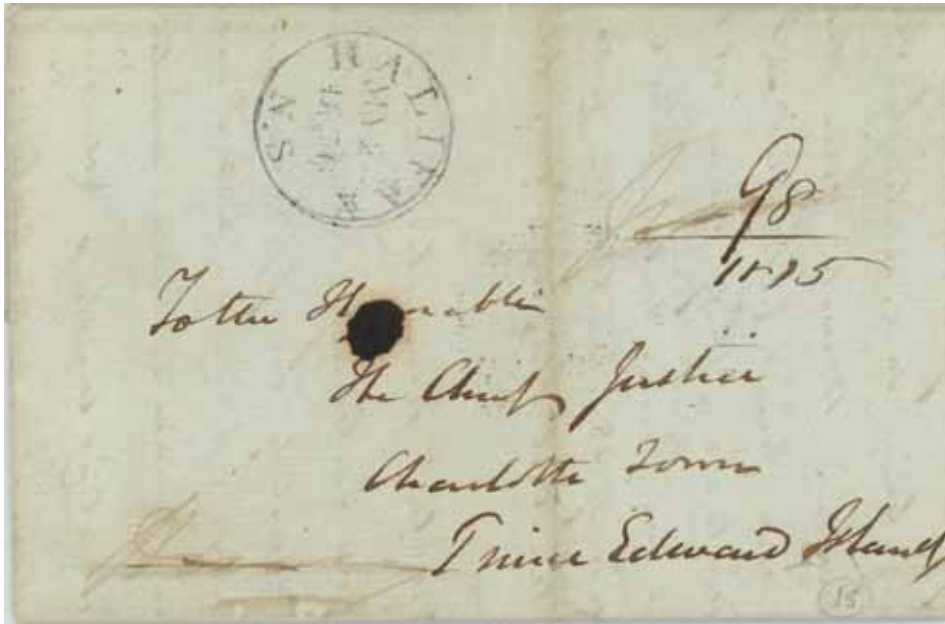 HALIFAX N.S
98
To the Honorable
The Chief Justice
Charlotte Town
Prince Edward Island
15